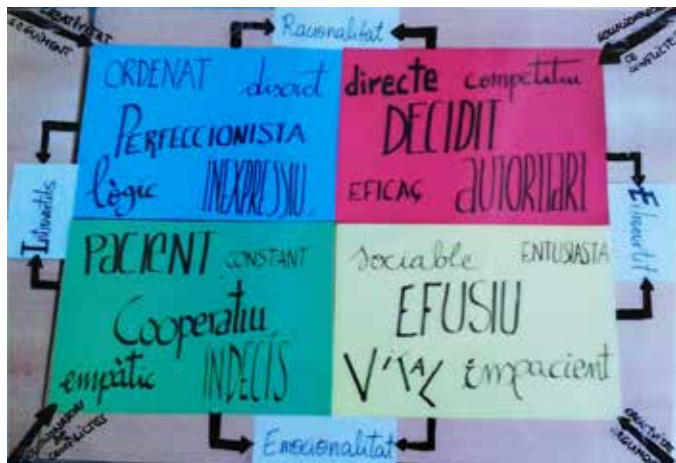 CREATIVITAT
SEGUIMENT
Racionalitat
DE CONFLICTES
ORDENAT discret
PERFECCIONISTA
lògic INEXPRESSIU
directe competitiu
DECIDIT
EFICAÇ AUTORITARI
Introvertits
Extrovertit
PACIENT CONSTANT
Cooperatiu
empàtic INDECÍS
sociable ENTUSIASTA
EFUSIU
VITAL impacient
DE CONFLICTES
Emocionalitat